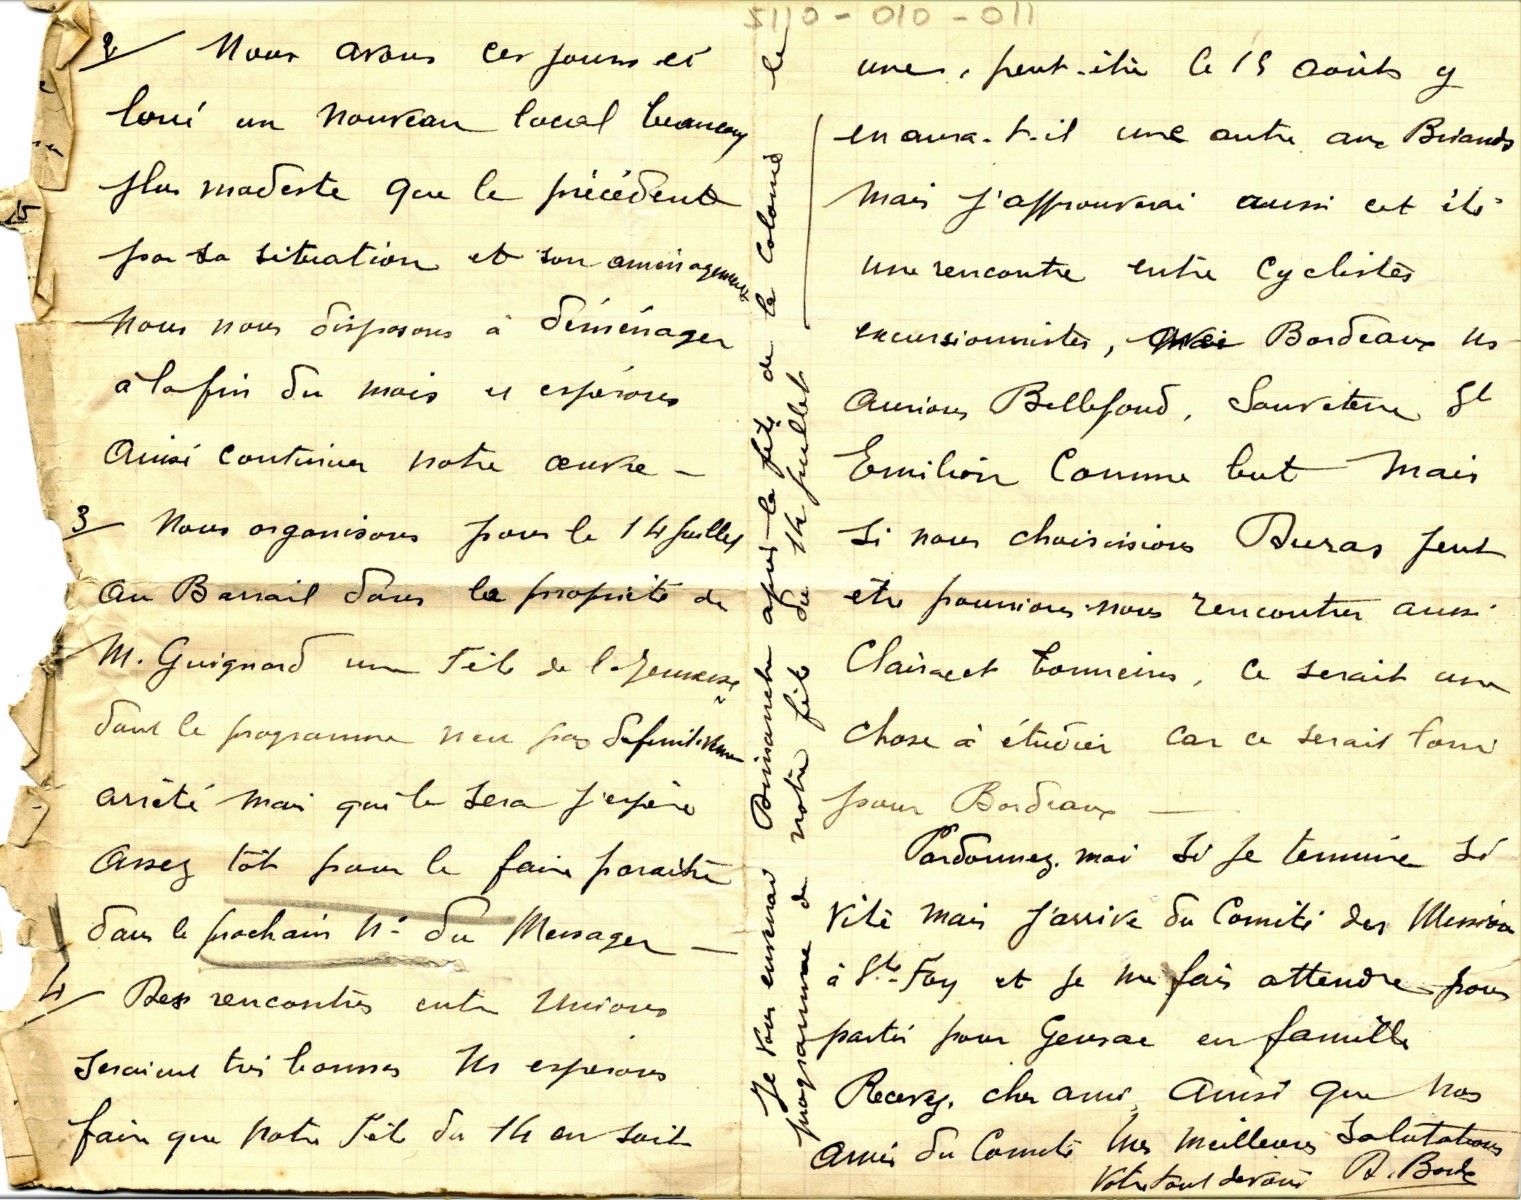 5110 - 010 - 011
2/ Nous avons ces jours-ci
loué un nouveau local beaucoup
plus modeste que le précédent
par sa situation et son aménagement
Nous nous disposons à déménager
à la fin du mois et espérons
ainsi continuer notre œuvre —
3/ Nous organisons pour le 14 Juillet
au Barrail dans la propriété de
M. Guignard une Fête de la Jeunesse
dont le programme n'est pas définitivement
arrêté mais qui le sera j'espère
assez tôt pour le faire paraître
dans le prochain N° du Messager —
4/ Des rencontres entre Unions
seraient très bonnes Ns espérons
faire que notre Fête du 14 en soit
Je vous enverrai Dimanche après la fête de la Colonie le
programme de notre fête du 14 juillet
une, peut-être le 15 août y
en aura-t-il une autre aux Briands
mais j'approuverai aussi cet été
une rencontre entre Cyclistes
excursionnistes, Bordeaux ns
aurions Bellefond, Sauveterre St
Emilion comme but mais
si nous choisissions Duras peut
être pourrions-nous rencontrer aussi
Clairac et Tonneins, ce serait une
chose à étudier car ce serait loin
pour Bordeaux —
Pardonnez-moi si je termine si
vite mais j'arrive du Comité des Missions
à Ste-Foy et je me fais attendre pour
partir pour Gensac en famille
Recevez, cher ami, ainsi que nos
amis du Comité mes meilleures salutations
Votre tout dévoué